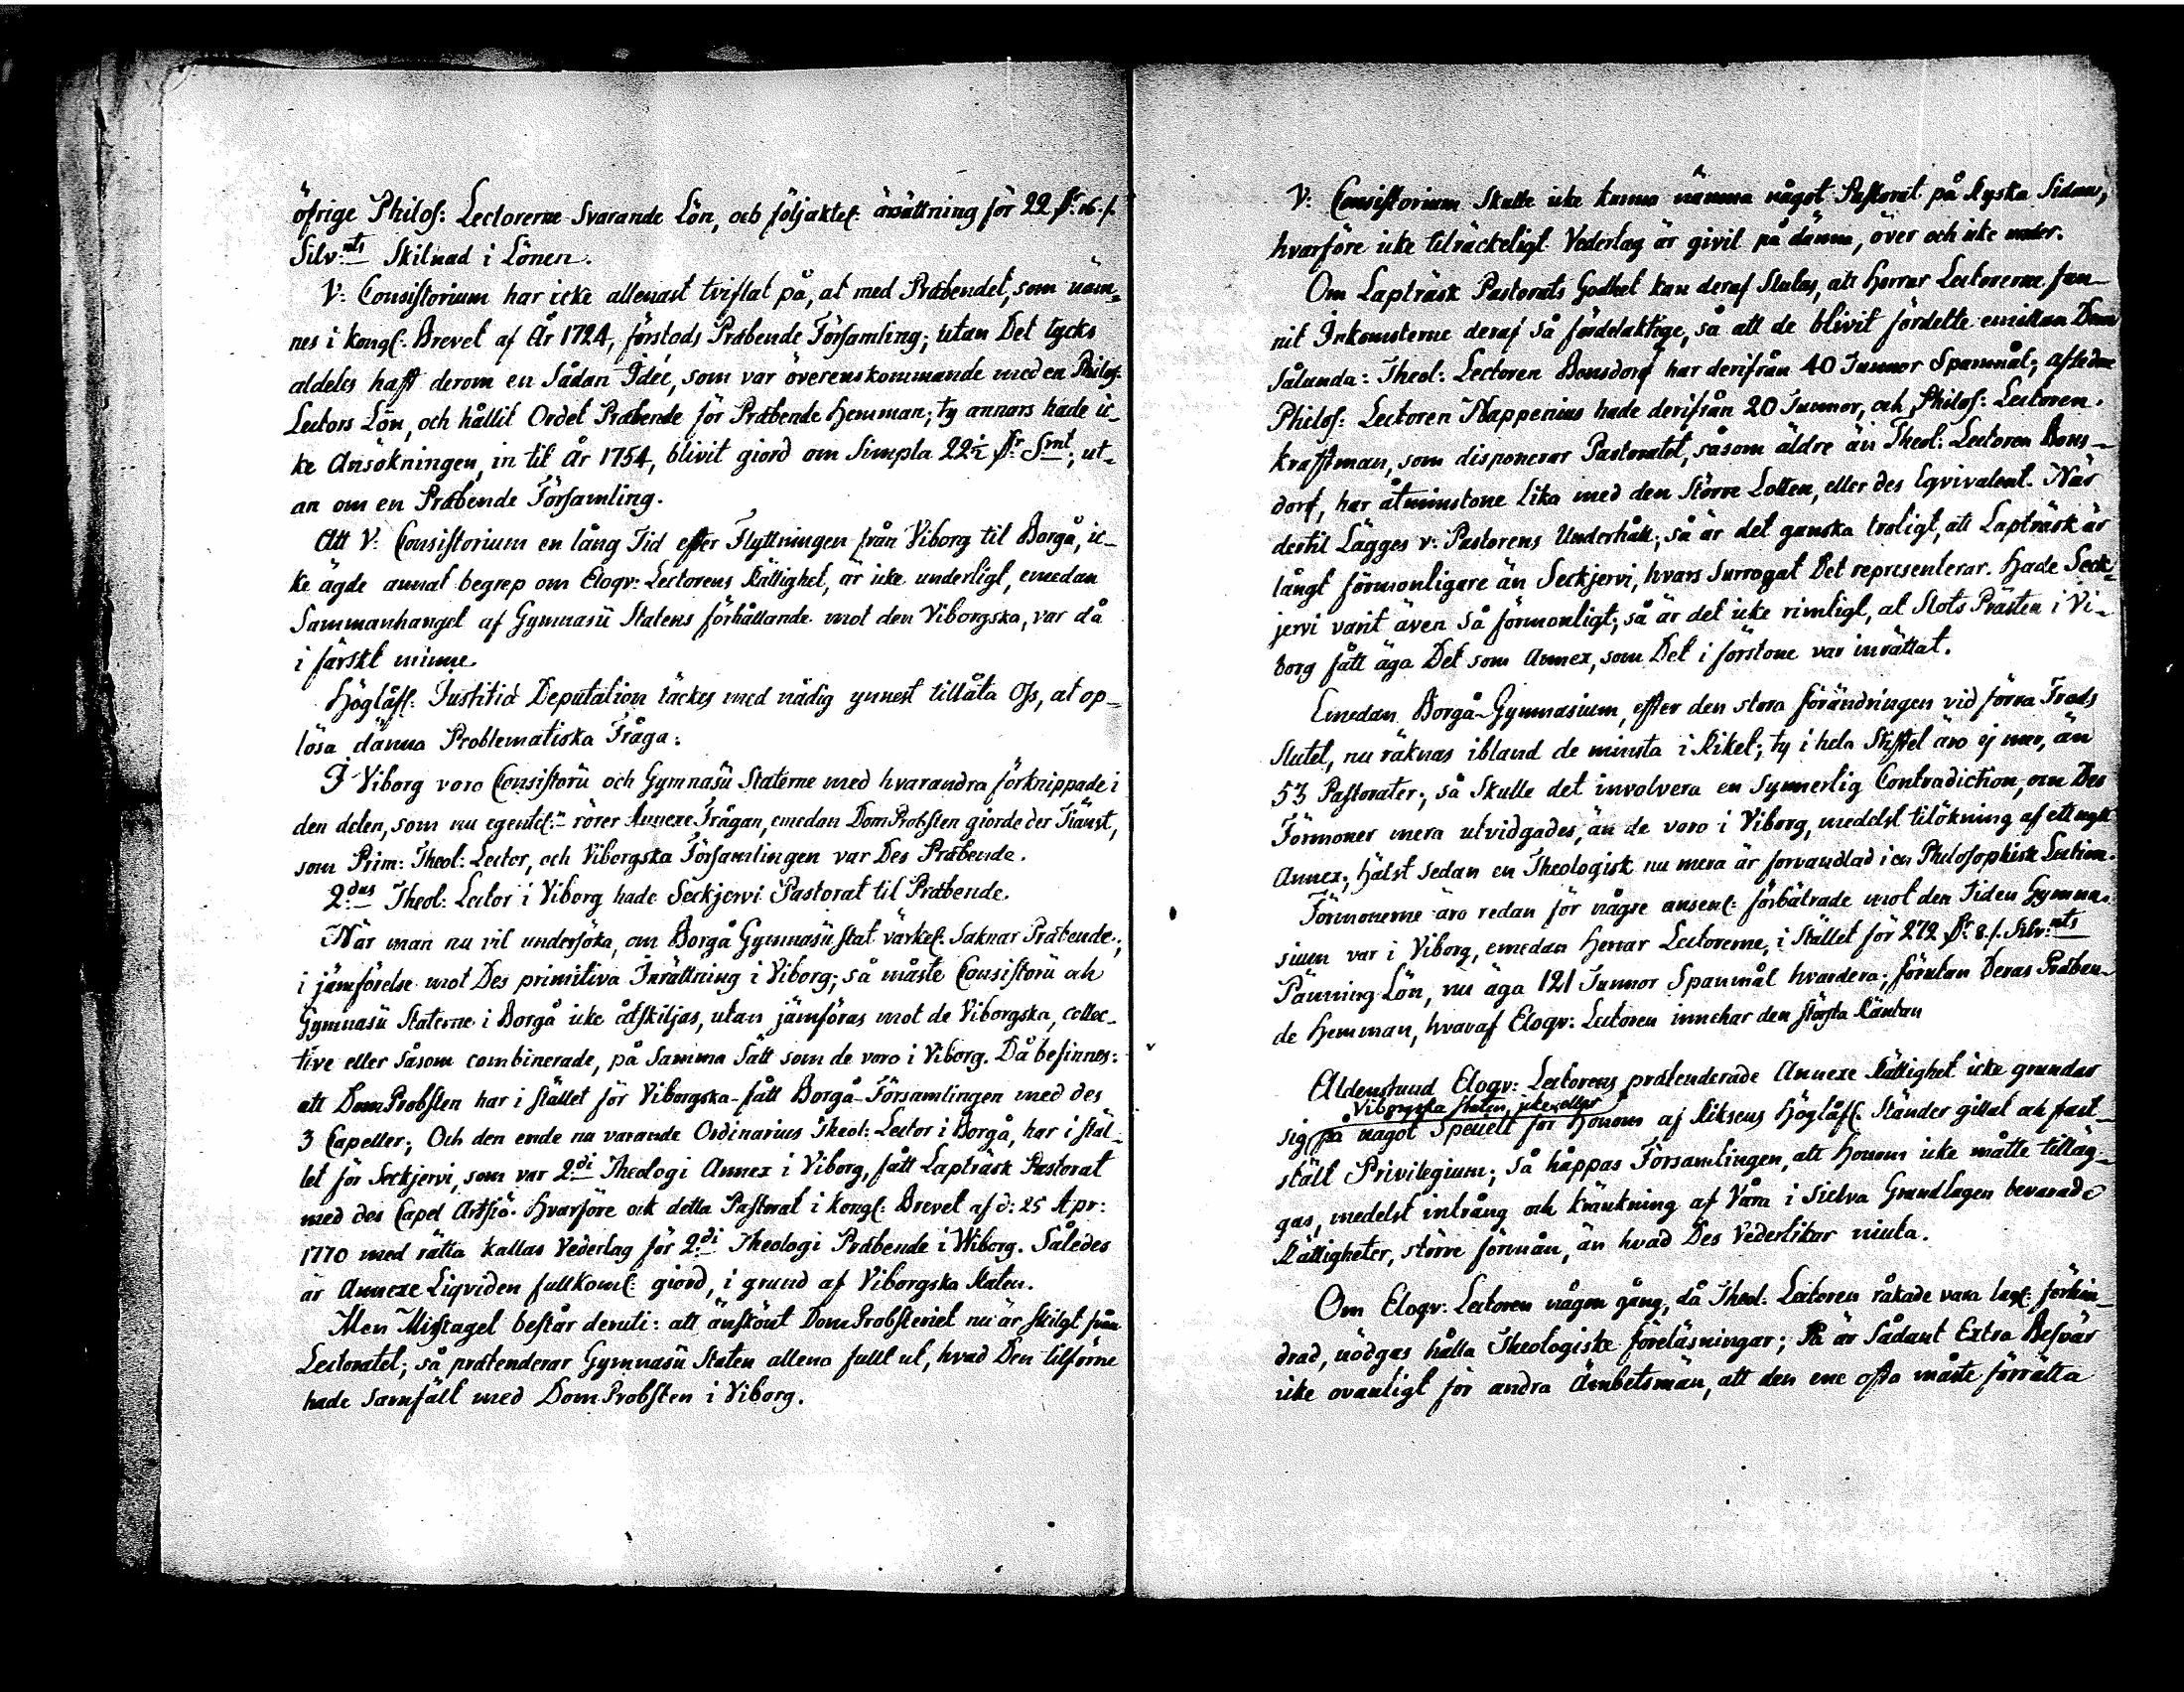 öfrige Philos: Lectorerne Svarande Lön, och följaktel: ärsättning för 22 Dr. 16 s.
Silv:mts Skilnad i Lönen.
V: Consistorium har icke allenast tviflat på, at med Præbendet, som näm-
nes i kongl: Brevet af År 1724, förstods Præbende Församling; utan Det tycks
aldeles haft derom en Sådan Idée, som var överenskommande med en Philos:
Lectors Lön, och hållit Ordet Præbende för Præbende Hemman; ty annars hade ic-
ke Ansökningen, in til År 1754, blivit giord om Simpla 22½ Dr Smt; ut-
an om en Præbende Församling.
Att V: Consistorium en lång Tid efter Flyttningen från Viborg til Borgå, ic-
ke ägde annat begrep om Eloqv: Lectorens Rättighet, är icke underligt, emedan
Sammanhanget af Gymnasii Statens förhållande mot den Viborgska, var då
i färskt minne.
Höglåfl: Justitiæ Deputation täckes med nådig ynnest tillåta Oss, at op-
lösa dänna Problematiska Fråga:
I Viborg voro Consistorii och Gymnasii Staterne med hvarandra förknippade i
den delen, som nu egentel:n rörer Annexe Frågan, emedan DomProbsten giorde der Tiänst,
som Prim: Theol: Lector, och Viborgska Församlingen var Des Præbende.
2:dus Theol: Lector i Viborg hade Seckjervi Pastorat til Præbende.
När man nu vil undersöka, om Borgå Gymnasii stat värkel: Saknar Præbende;
i jämförelse mot Des primitiva Inrättning i Viborg; så måste Consistorii och
Gymnasii Staterne i Borgå icke åtskiljas, utan jämföras mot de Viborgska, collec-
tive eller såsom combinerade, på Samma Sätt som de voro i Viborg. Då befinnes:
att DomProbsten har i stället för Viborgska- fått Borgå-Församlingen med des
3 Capeller; Och den ende nu varande Ordinarius Theol: Lector i Borgå, har i stäl-
let för Seckjervi, som var 2:di Theologi Annex i Viborg, fått Lapträsk Pastorat
med des Capel Artsiö. Hvarföre ock detta Pastorat i kongl: Brevet af d: 25 Apr:
1770 med rätta kallas Vederlag för 2:di Theologi Præbende i Wiborg. Således
är Annexe Liqviden fullkoml: giord, i grund af Viborgska Staten.
Men Misstaget består deruti: att änskönt DomProbsteriet nu är skilgt från
Lectoratet; så prætenderar Gymnasii Staten allena fullt ut, hvad Den tilförne
hade Samfält med DomProbsten i Viborg.
V: Consistorium Skulle icke kunna nämna något Pastorat på Ryska Sidan,
hvarföre icke tilräckeligt Vederlag är givit på dänna, över och icke under.
Om Lapträsk Pastorats Godhet kan deraf Slutas, att Herrar Lectorerne fun-
nit Inkomsterne deraf så fördelaktige, så att de blivit fördelte emillan Dem
Sålunda: Theol: Lectoren Bonsdorf har derifrån 40 Tunnor Spanmål; afledne
Philos: Lectoren Nappenius hade derifrån 20 Tunnor, och Philos: Lectoren
Krafftman, som disponerar Pastoratet, såsom äldre än Theol: Lectoren Bons-
dorf, har åtminstone lika med den Större Lotten, eller des Eqvivalent. När
dertil Lägges v: Pastorens Underhåll; så är det ganska troligt, att Lapträsk är
långt förmonligare än Seckjervi, hvars Surrogat Det representerar. Hade Seck-
jervi varit även så förmonligt; så är det icke rimligt, at Slots Prästen i Vi-
borg fått äga Det som Annex, som Det i förstone var inrättat.
Emedan Borgå-Gymnasium, efter den stora förändringen vid förra Freds
Slutet, nu räknas ibland de minsta i Riket; ty i hela Stiftet äro ej mer, än
53 Pastorater; så Skulle det involvera en Synnerlig Contradiction, om Des
Förmoner mera utvidgades, än de voro i Viborg, medelst tilökning af ett nytt
Annex; hälst sedan en Theologisk nu mera är forvandlad i en Philosophisk Lection.
Förmonerne äro redan för någre ansenl: förbätrade mot den Tiden Gymna-
sium var i Viborg, emedan Herrar Lectorerne, i Stället för 272 Dr. 8 s. Silv:mts
Pänning Lön, nu äga 121 Tunnor Spanmål hvardera; förutan Deras Præben-
de Hemman, hvaraf Eloqv: Lectoren innehar den största Räntan
Aldenstund Eloqv: Lectorens prætenderade Annexe Rättighet icke grundar
Viborgska staten, icke eller
sig på något Specielt för Honom af Riksens Höglåfl: Ständer gillat och fast-
stält Privilegium; Så håppas Församlingen, att Honom icke måtte tilläg-
gas, medelst intrång och kränkning af Våra i Sielva Grundlagen bevarade
Rättigheter, större förmån, än hvad Des Vederlikar niuta.
Om Eloqv: Lectoren någon gång, då Theol: Lectoren råkade vara lagl: förhin-
drad, nödgas hålla Theologiske föreläsningar; Så är Sådant Extra Besvär
icke ovanligt för andra Ämbetsmän, att den ene ofta måste förrätta